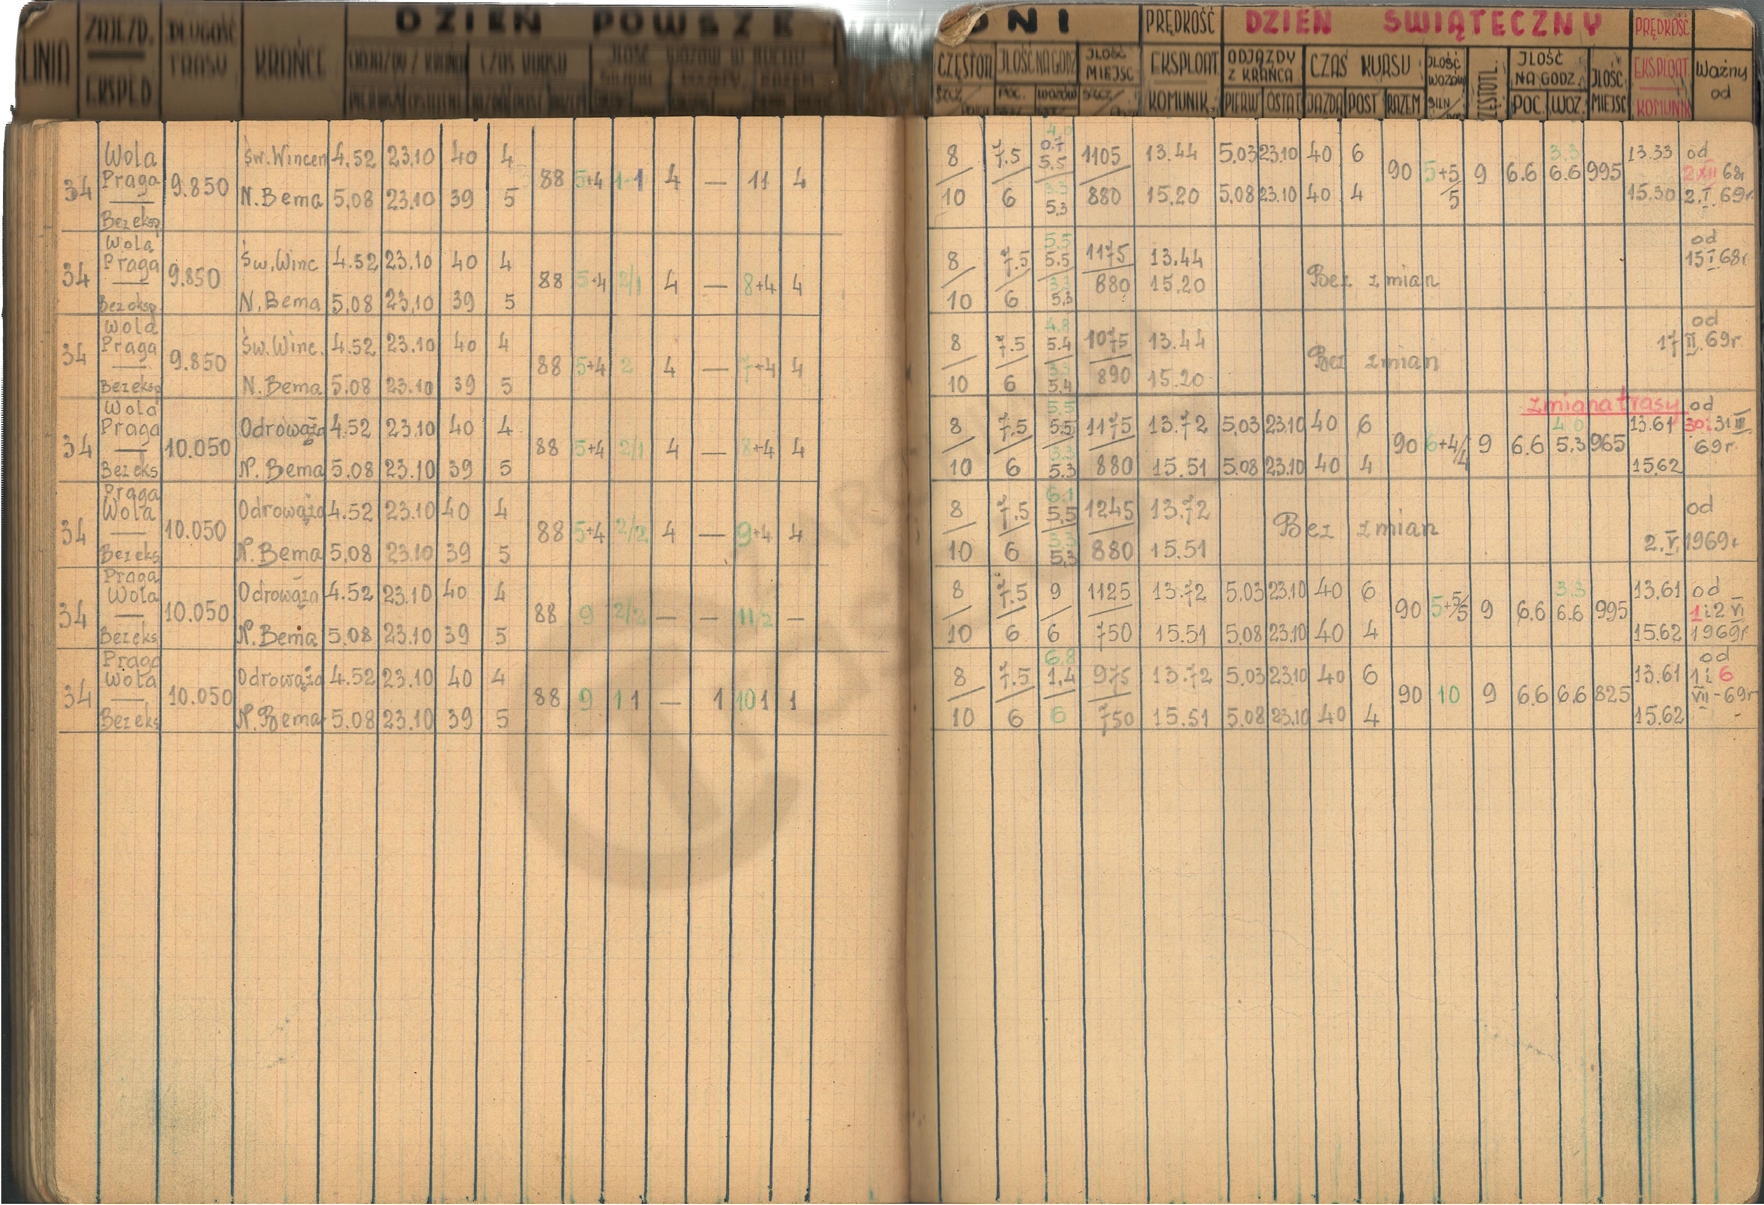 LINIA ZAJEZD. EKSPED DŁUGOŚĆ TRASY KRAŃCE DZIEŃ POWSZE DNI PRĘDKOŚĆ EKSPLOAT. KOMUNIK. DZIEŃ ŚWIĄTECZNY PRĘDKOŚĆ EKSPLOAT. KOMUNIK Ważny od
ODJAZDY Z KRAŃCA CZAS KURSU JLOŚĆ NA GODZ JLOŚĆ MIEJSC
PIERW OSTAT JAZDA POST RAZEM POC. WOZ.
Wola Św.Wincen 4.52 23.10 40 4 8 7.5 5.5 1105 13.44 5.03 23.10 40 6 3.3 13.33 od
34 Praga 9.850 88 5+4 1-1 4 — 11 4 90 5+5/5 9 6.6 6.6 995 2 XII 68r
Bez eksp N.Bema 5.08 23.10 39 5 10 6 5.3 880 15.20 5.08 23.10 40 4 15.30 2.I.69r
Wola Św.Winc 4.52 23.10 40 4 8 7.5 5.5 5.5 1175 13.44 od
34 Praga 9.850 88 5+4 2/1 4 — 8+4 4 Bez zmian 15 I 68r
Bez eksp N.Bema 5.08 23.10 39 5 10 6 3.3 5.3 880 15.20
Wola Św.Winc. 4.52 23.10 40 4 8 7.5 4.8 5.4 1075 13.44 od
34 Praga 9.850 88 5+4 2 4 — 7+4 4 Bez zmian 17 II.69r
Bez eksp N.Bema 5.08 23.10 39 5 10 6 3.3 5.4 890 15.20
zmiana trasy od
Wola Odrowąża 4.52 23.10 40 4 8 7.5 5.5 5.5 1175 13.72 5.03 23.10 40 6 4.0 13.61 30i31 III
34 Praga 10.050 88 5+4 2/1 4 — 8+4 4 90 6+4/4 9 6.6 5.3 965 69r
Bez eks N.Bema 5.08 23.10 39 5 10 6 3.3 5.3 880 15.51 5.08 23.10 40 4 15.62
Praga Wola Odrowąża 4.52 23.10 40 4 8 7.5 6.1 5.5 1245 13.72 od
34 10.050 88 5+4 2/2 4 — 9+4 4 Bez zmian
Bez eks N.Bema 5.08 23.10 39 5 10 6 3.3 5.3 880 15.51 2.V.1969r
Praga Wola Odrowąża 4.52 23.10 40 4 8 7.5 9 1125 13.72 5.03 23.10 40 6 3.3 13.61 od
34 10.050 88 9 2/2 — — 11/2 — 90 5+5/5 9 6.6 6.6 995 1i2 VI
Bez eks N.Bema 5.08 23.10 39 5 10 6 6 750 15.51 5.08 23.10 40 4 15.62 1969r
Praga Wola Odrowąża 4.52 23.10 40 4 8 7.5 6.8 1.4 975 13.72 5.03 23.10 40 6 13.61 od 1i6
34 10.050 88 9 11 — 1 101 1 90 10 9 6.6 6.6 825 VII-69r
Bez eks N.Bema 5.08 23.10 39 5 10 6 6 750 15.51 5.08 23.10 40 4 15.62